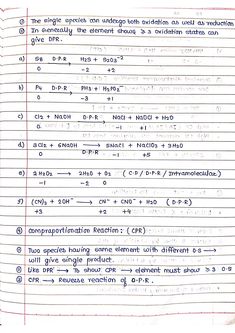 ① The single species can undergo both oxidation as well as reduction
② In generally the element shows ≥ 3 oxidation states can
give DPR.
a) S8 D·P·R → H2S + S2O3⁻²
0 -2 +2
b) P4 D·P·R → PH3 + H2PO2⁻
0 -3 +1
c) Cl2 + NaOH D·P·R → NaCl + NaOCl + H2O
0 -1 +1
d) 3Cl2 + 6NaOH D·P·R → 5NaCl + NaClO3 + 3H2O
0 -1 +5
e) 2H2O2 → 2H2O + O2 (C·D / D·P·R / Intramolecular)
-1 -2 0
f) (CN)2 + 2OH⁻ → CN⁻ + CNO⁻ + H2O (D·P·R)
+3 +2 +4
④ Comproportionation Reaction : (CPR)
① Two species having same element with different O·S →
will give single product.
② Like DPR → To show CPR → element must show ≥ 3 O·S
③ CPR → Reverse reaction of D·P·R.